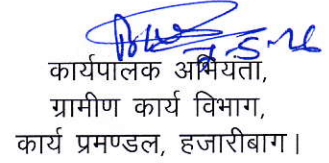 कार्यपालक अभियंता,
ग्रामीण कार्य विभाग,
कार्य प्रमण्डल, हजारीबाग।